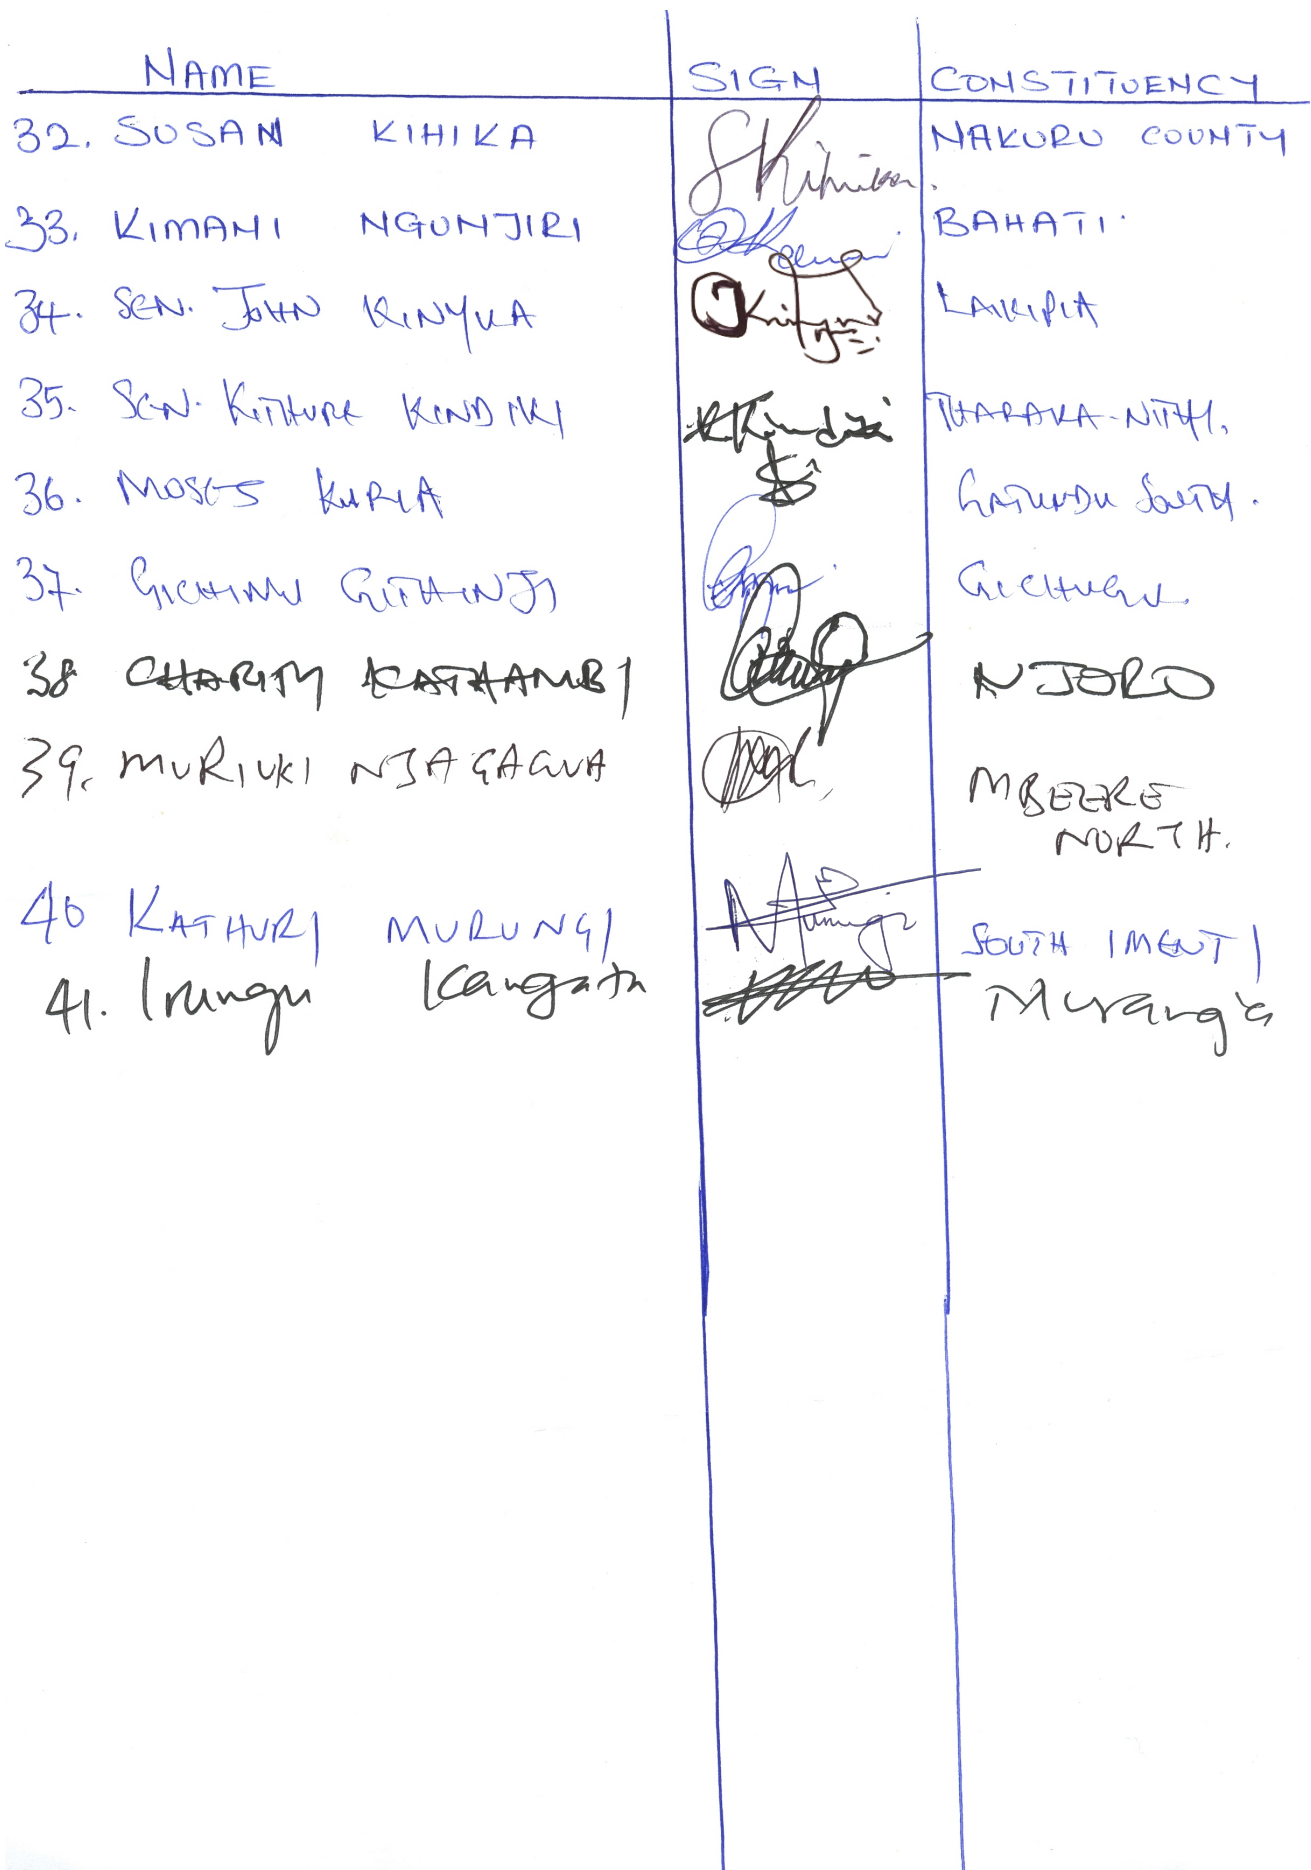 NAME SIGN CONSTITUENCY
32. SUSAN KIHIKA SKihika. NAKURU COUNTY
33. KIMANI NGUNJIRI BAHATI.
34. SEN. JOHN KINYUA LAIKIPIA
35. SEN. KITHURE KINDIKI KKindiki THARAKA-NITHI.
36. MOSES KURIA GATUNDU SOUTH.
37. GICHIMU GITHINJI GICHUGU.
38 CHARITY KATHAMBI NJORO
39. MURIUKI NJAGAGUA MBEERE
NORTH.
40 KATHURI MURUNGI SOUTH IMENTI
41. Irungu Kangata Murang'a